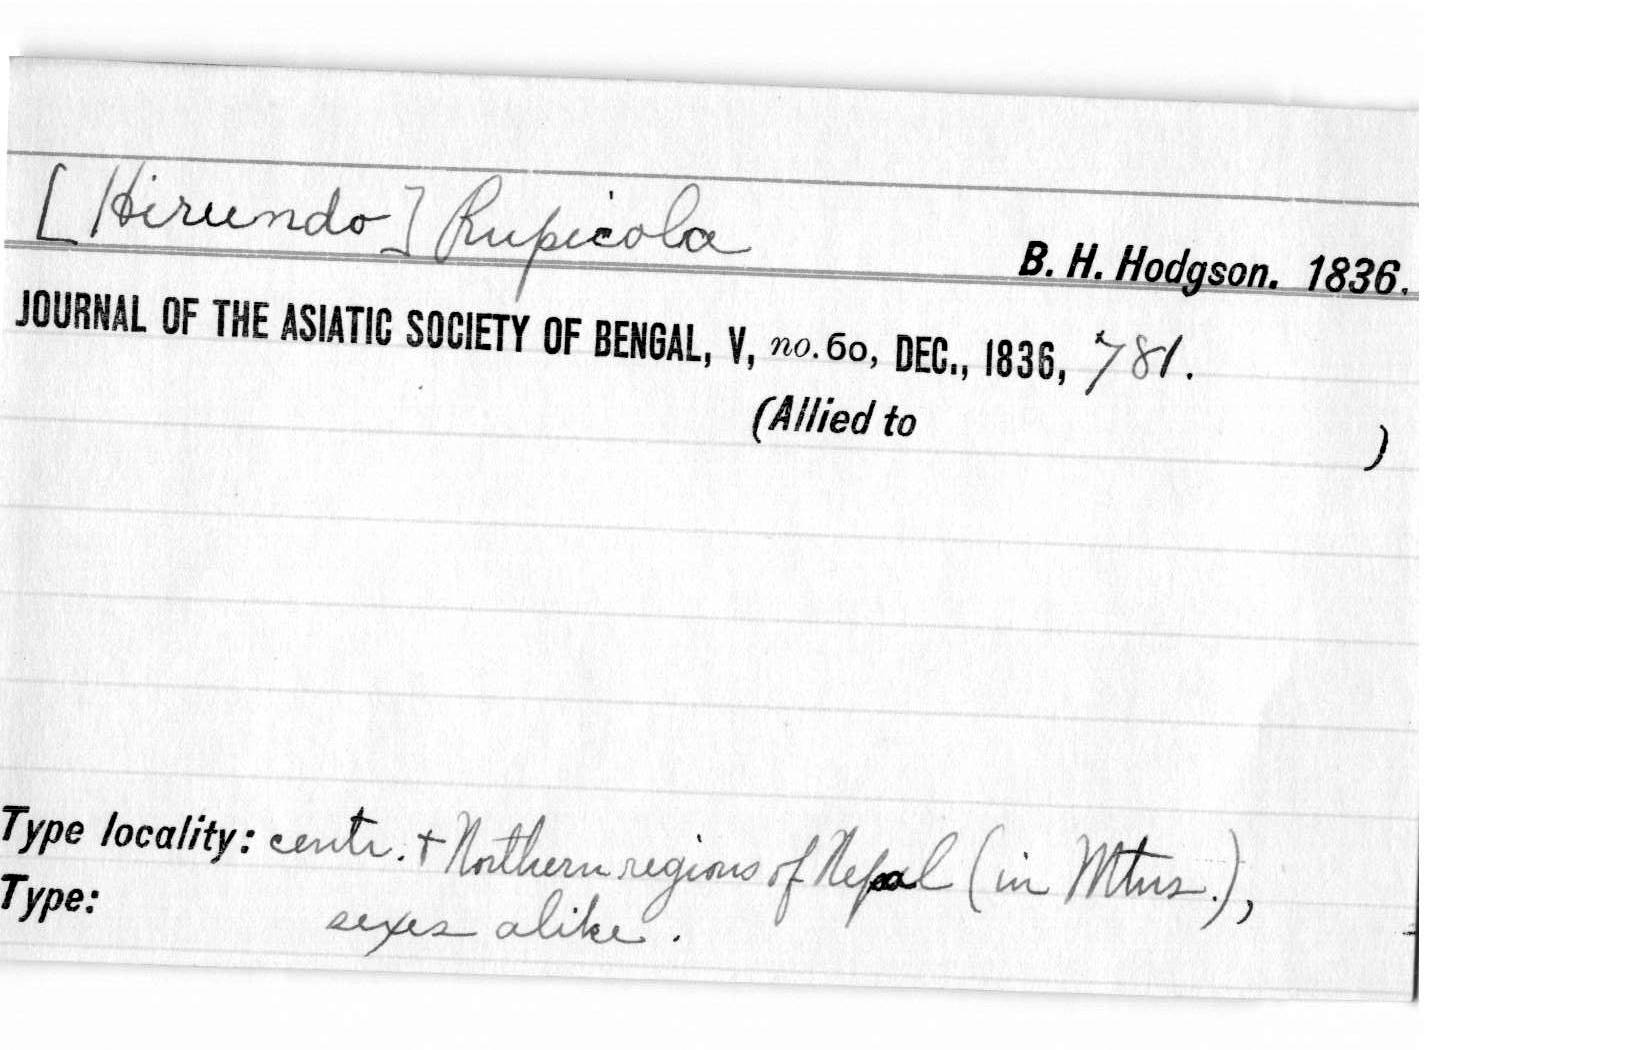 [Hirundo] Rupicola
B. H. Hodgson. 1836.
JOURNAL OF THE ASIATIC SOCIETY OF BENGAL, V, no. 60, DEC., 1836, 781.
(Allied to )
Type locality: centr. + Northern regions of Nepal (in Mtns.),
Type: sexes alike.